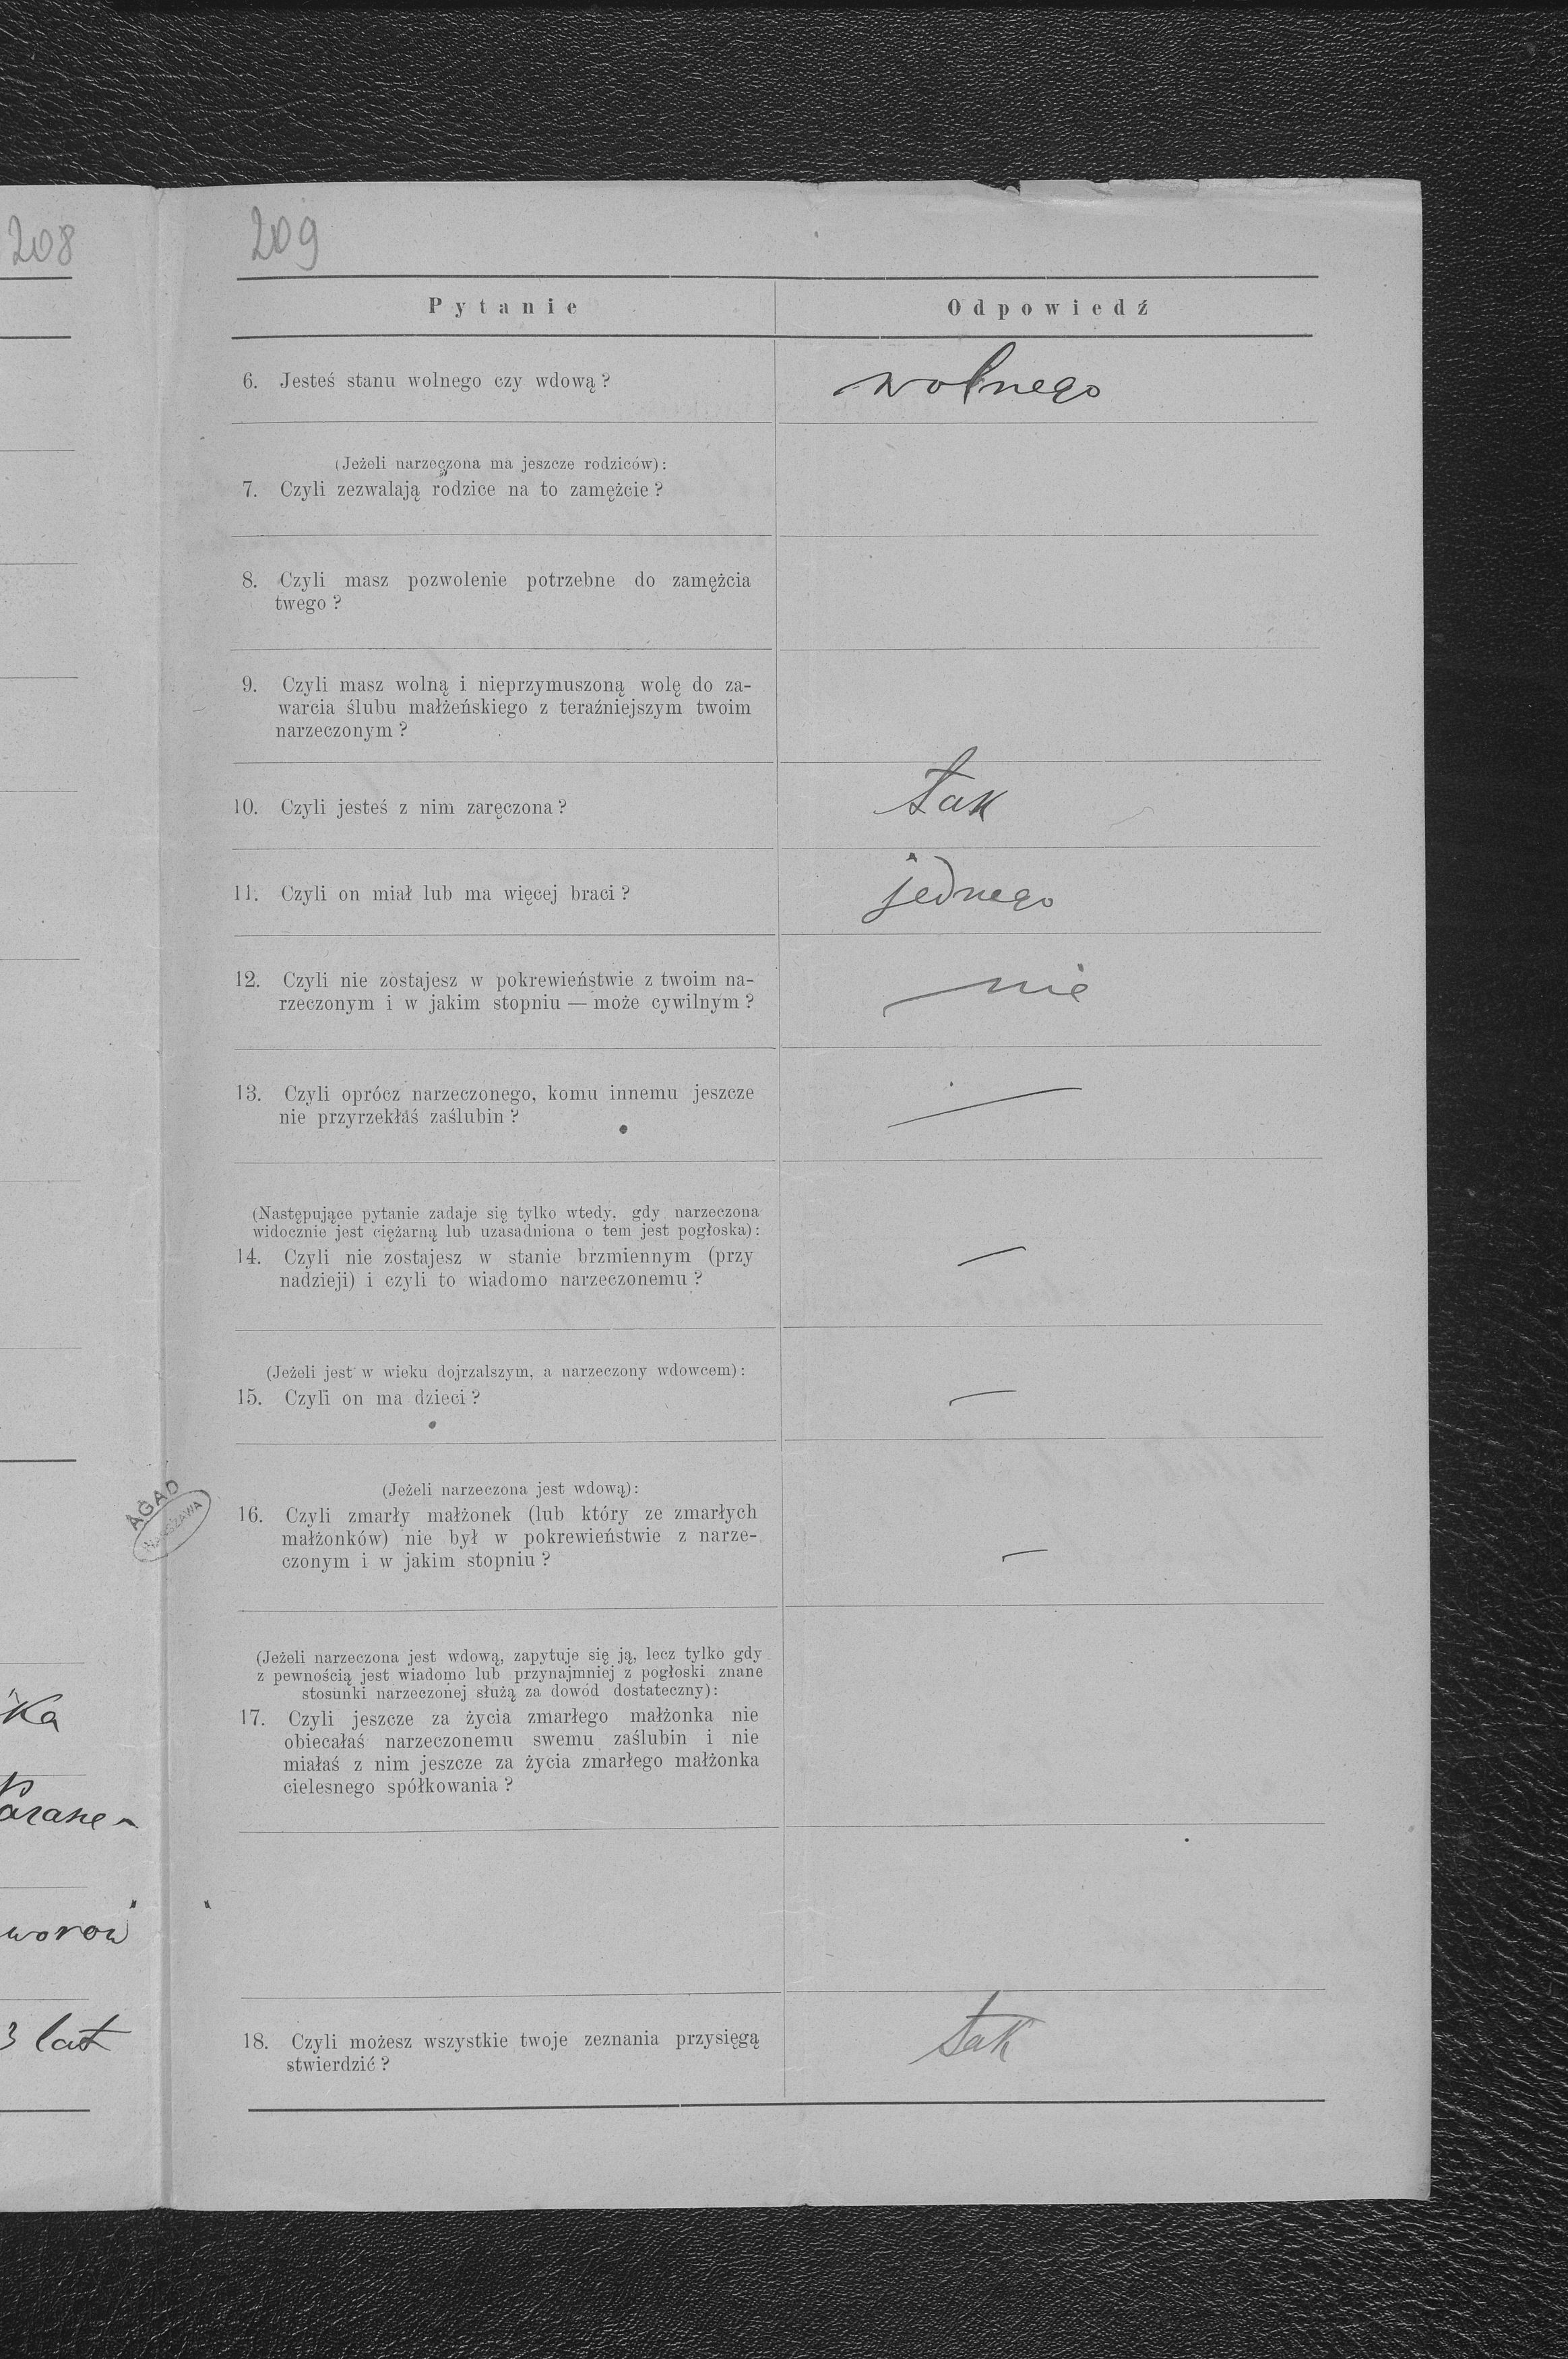 208
ka
worow
3 lat
AGAD
WARSZAWA
209
Pytanie Odpowiedź
6. Jesteś stanu wolnego czy wdową? wolnego
(Jeżeli narzeczona ma jeszcze rodziców):
7. Czyli zezwalają rodzice na to zamężcie?
8. Czyli masz pozwolenie potrzebne do zamężcia
twego?
9. Czyli masz wolną i nieprzymuszoną wolę do za-
warcia ślubu małżeńskiego z teraźniejszym twoim
narzeczonym?
10. Czyli jesteś z nim zaręczona? tak
11. Czyli on miał lub ma więcej braci? jednego
12. Czyli nie zostajesz w pokrewieństwie z twoim na-
rzeczonym i w jakim stopniu — może cywilnym? nie
13. Czyli oprócz narzeczonego, komu innemu jeszcze —
nie przyrzekłaś zaślubin?
(Następujące pytanie zadaje się tylko wtedy, gdy narzeczona
widocznie jest ciężarną lub uzasadniona o tem jest pogłoska):
14. Czyli nie zostajesz w stanie brzmiennym (przy —
nadzieji) i czyli to wiadomo narzeczonemu?
(Jeżeli jest w wieku dojrzalszym, a narzeczony wdowcem):
15. Czyli on ma dzieci? —
(Jeżeli narzeczona jest wdową):
16. Czyli zmarły małżonek (lub który ze zmarłych
małżonków) nie był w pokrewieństwie z narze-
czonym i w jakim stopniu? —
(Jeżeli narzeczona jest wdową, zapytuje się ją, lecz tylko gdy
z pewnością jest wiadomo lub przynajmniej z pogłoski znane
stosunki narzeczonej służą za dowód dostateczny):
17. Czyli jeszcze za życia zmarłego małżonka nie
obiecałaś narzeczonemu swemu zaślubin i nie
miałaś z nim jeszcze za życia zmarłego małżonka
cielesnego spółkowania?
18. Czyli możesz wszystkie twoje zeznania przysięgą tak
stwierdzić?